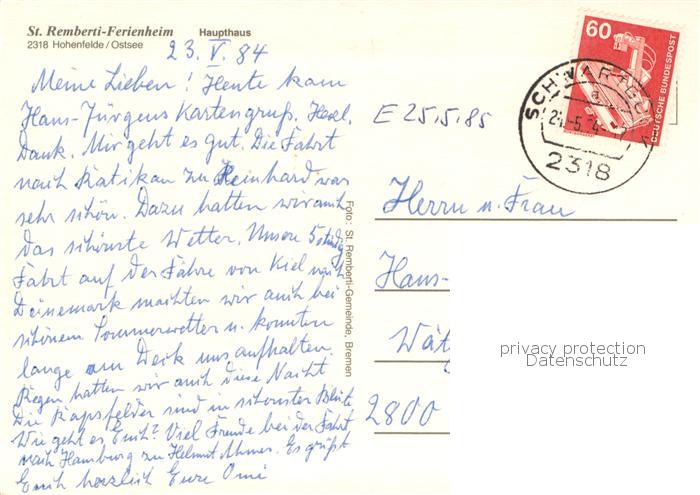 St. Remberti-Ferienheim Haupthaus
2318 Hohenfelde/Ostsee
23. V. 84
Meine Lieben! Heute kam
Hans-Jürgens Kartengruß. Herzl.
Dank. Mir geht es gut. Die Fahrt
nach Ratikau zu Reinhard war
sehr schön. Dazu hatten wir auch
das schönste Wetter. Unsere 5 stündig
Fahrt auf der Fähre von Kiel nach
Dänemark machten wir auch bei
schönem Sommerwetter u. konnten
lange am Deck uns aufhalten.
Regen hatten wir auch diese Nacht
Die Rapsfelder sind in schönster Blüte
Wie geht es Euch? Viel Freude bei der Fahrt
nach Hamburg zu Helmut Es grüßt
Euch herzlich Eure Omi
Foto: St. Remberti-Gemeinde, Bremen
E 25.5.85
60
DEUTSCHE BUNDESPOST
2318
Herrn u. Frau
Hans-
Wät
2800
privacy protection
Datenschutz